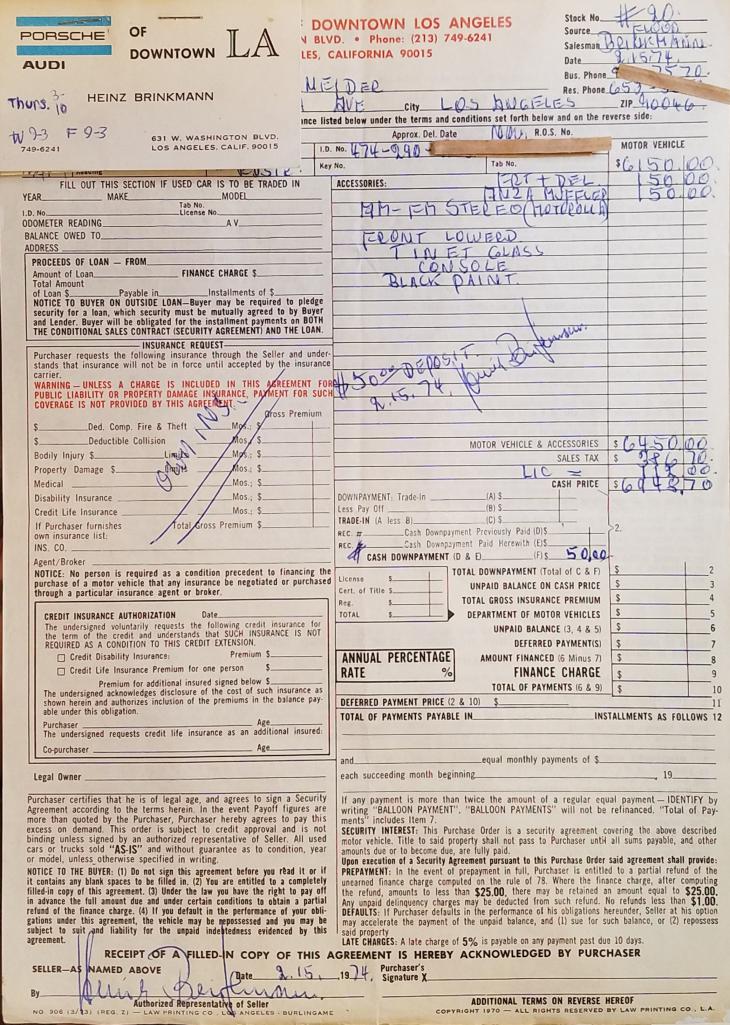 PORSCHE
AUDI
OF
DOWNTOWN
LA
HEINZ BRINKMANN
Thurs. 3-10
W 9-3 F 9-3
749-6241
631 W. WASHINGTON BLVD.
LOS ANGELES, CALIF. 90015
DOWNTOWN LOS ANGELES
N BLVD. • Phone: (213) 749-6241
LES, CALIFORNIA 90015
Stock No. # 20.
Source FLOOD
Salesman BRINKMANN
Date 2.15.74.
Bus. Phone
Res. Phone
AVE City LOS ANGELES ZIP 90046.
nce listed below under the terms and conditions set forth below and on the reverse side:
Approx. Del. Date R.O.S. No.
I.D. No. 474-290-
Key No. Tab No.
MOTOR VEHICLE $6150.00.
FILL OUT THIS SECTION IF USED CAR IS TO BE TRADED IN
YEAR MAKE MODEL
Tab No.
I.D. No. License No.
ODOMETER READING A V
BALANCE OWED TO
ADDRESS
ACCESSORIES: FRT + DEL. 150.00.
ANZA MUFFLER 150.00.
AM-FM STEREO (MOTOROLA)
FRONT LOWERD
TINET GLASS
CONSOLE
BLACK PAINT.
PROCEEDS OF LOAN — FROM
Amount of Loan FINANCE CHARGE $
Total Amount
of Loan $ Payable in Installments of $
NOTICE TO BUYER ON OUTSIDE LOAN—Buyer may be required to pledge
security for a loan, which security must be mutually agreed to by Buyer
and Lender. Buyer will be obligated for the installment payments on BOTH
THE CONDITIONAL SALES CONTRACT (SECURITY AGREEMENT) AND THE LOAN.
INSURANCE REQUEST
Purchaser requests the following insurance through the Seller and under-
stands that insurance will not be in force until accepted by the insurance
carrier.
WARNING — UNLESS A CHARGE IS INCLUDED IN THIS AGREEMENT FOR
PUBLIC LIABILITY OR PROPERTY DAMAGE INSURANCE, PAYMENT FOR SUCH
COVERAGE IS NOT PROVIDED BY THIS AGREEMENT.
OWN INS.
Gross Premium
$ Ded. Comp. Fire & Theft Mos.; $
$ Deductible Collision Mos.; $
Bodily Injury $ Limits Mos.; $
Property Damage $ Limit Mos.; $
Medical Mos.; $
Disability Insurance Mos.; $
Credit Life Insurance Mos.; $
If Purchaser furnishes Total Gross Premium $
own insurance list:
INS. CO.
Agent/Broker
NOTICE: No person is required as a condition precedent to financing the
purchase of a motor vehicle that any insurance be negotiated or purchased
through a particular insurance agent or broker.
CREDIT INSURANCE AUTHORIZATION Date
The undersigned voluntarily requests the following credit insurance for
the term of the credit and understands that SUCH INSURANCE IS NOT
REQUIRED AS A CONDITION TO THIS CREDIT EXTENSION.
Credit Disability Insurance: Premium $
Credit Life Insurance Premium for one person $
Premium for additional insured signed below $
The undersigned acknowledges disclosure of the cost of such insurance as
shown herein and authorizes inclusion of the premiums in the balance pay-
able under this obligation.
Purchaser Age
The undersigned requests credit life insurance as an additional insured:
Co-purchaser Age
Legal Owner
$50.00 DEPOSIT.
2.15.74.
MOTOR VEHICLE & ACCESSORIES $6450.00.
SALES TAX 386.70
LIC =
CASH PRICE $
DOWNPAYMENT: Trade-In (A) $
Less Pay Off (B) $
TRADE-IN (A less B) (C) $
REC # Cash Downpayment Previously Paid (D) $
REC # Cash Downpayment Paid Herewith (E) $
2.
CASH DOWNPAYMENT (D & E) (F) $ 50.00
License $
Cert. of Title $
Reg. $
TOTAL $
TOTAL DOWNPAYMENT (Total of C & F) $ 2
UNPAID BALANCE ON CASH PRICE $ 3
TOTAL GROSS INSURANCE PREMIUM $ 4
DEPARTMENT OF MOTOR VEHICLES $ 5
UNPAID BALANCE (3, 4 & 5) $ 6
DEFERRED PAYMENT(S) $ 7
AMOUNT FINANCED (6 Minus 7) $ 8
ANNUAL PERCENTAGE
RATE %
FINANCE CHARGE $ 9
TOTAL OF PAYMENTS (6 & 9) $ 10
DEFERRED PAYMENT PRICE (2 & 10) $ 11
TOTAL OF PAYMENTS PAYABLE IN INSTALLMENTS AS FOLLOWS 12
and equal monthly payments of $
each succeeding month beginning , 19
Purchaser certifies that he is of legal age, and agrees to sign a Security
Agreement according to the terms herein. In the event Payoff figures are
more than quoted by the Purchaser, Purchaser hereby agrees to pay this
excess on demand. This order is subject to credit approval and is not
binding unless signed by an authorized representative of Seller. All used
cars or trucks sold "AS-IS" and without guarantee as to condition, year
or model, unless otherwise specified in writing.
NOTICE TO THE BUYER: (1) Do not sign this agreement before you read it or if
it contains any blank spaces to be filled in. (2) You are entitled to a completely
filled-in copy of this agreement. (3) Under the law you have the right to pay off
in advance the full amount due and under certain conditions to obtain a partial
refund of the finance charge. (4) If you default in the performance of your obli-
gations under this agreement, the vehicle may be repossessed and you may be
subject to suit and liability for the unpaid indebtedness evidenced by this
agreement.
If any payment is more than twice the amount of a regular equal payment — IDENTIFY by
writing "BALLOON PAYMENT". "BALLOON PAYMENTS" will not be refinanced. "Total of Pay-
ments" includes Item 7.
SECURITY INTEREST: This Purchase Order is a security agreement covering the above described
motor vehicle. Title to said property shall not pass to Purchaser until all sums payable, and other
amounts due or to become due, are fully paid.
Upon execution of a Security Agreement pursuant to this Purchase Order said agreement shall provide:
PREPAYMENT: In the event of prepayment in full, Purchaser is entitled to a partial refund of the
unearned finance charge computed on the rule of 78. Where the finance charge, after computing
the refund, amounts to less than $25.00, there may be retained an amount equal to $25.00.
Any unpaid delinquency charges may be deducted from such refund. No refunds less than $1.00.
DEFAULTS: If Purchaser defaults in the performance of his obligations hereunder, Seller at his option
may accelerate the payment of the unpaid balance, and (1) sue for such balance, or (2) repossess
said property
LATE CHARGES: A late charge of 5% is payable on any payment past due 10 days.
RECEIPT OF A FILLED-IN COPY OF THIS AGREEMENT IS HEREBY ACKNOWLEDGED BY PURCHASER
SELLER—AS NAMED ABOVE Date 2.15. , 1974. Purchaser's
Signature X
By
Authorized Representative of Seller
ADDITIONAL TERMS ON REVERSE HEREOF
NO. 906 (3/73) (REG. Z) — LAW PRINTING CO., LOS ANGELES - BURLINGAME
COPYRIGHT 1970 — ALL RIGHTS RESERVED BY LAW PRINTING CO., L.A.